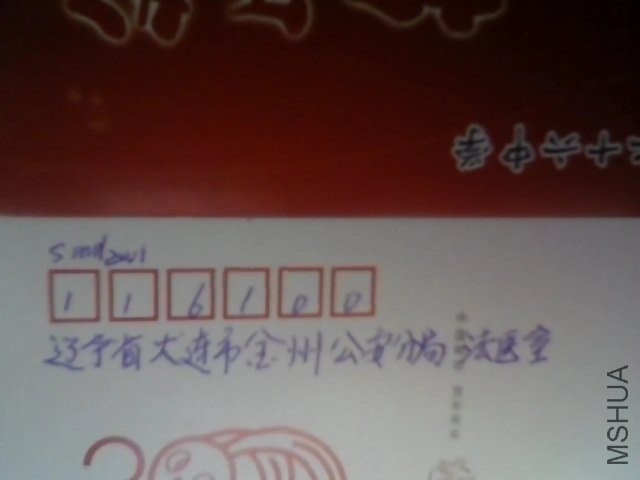 十六中学
116100
辽宁省大连市金州公安分局法医室
MSHUA